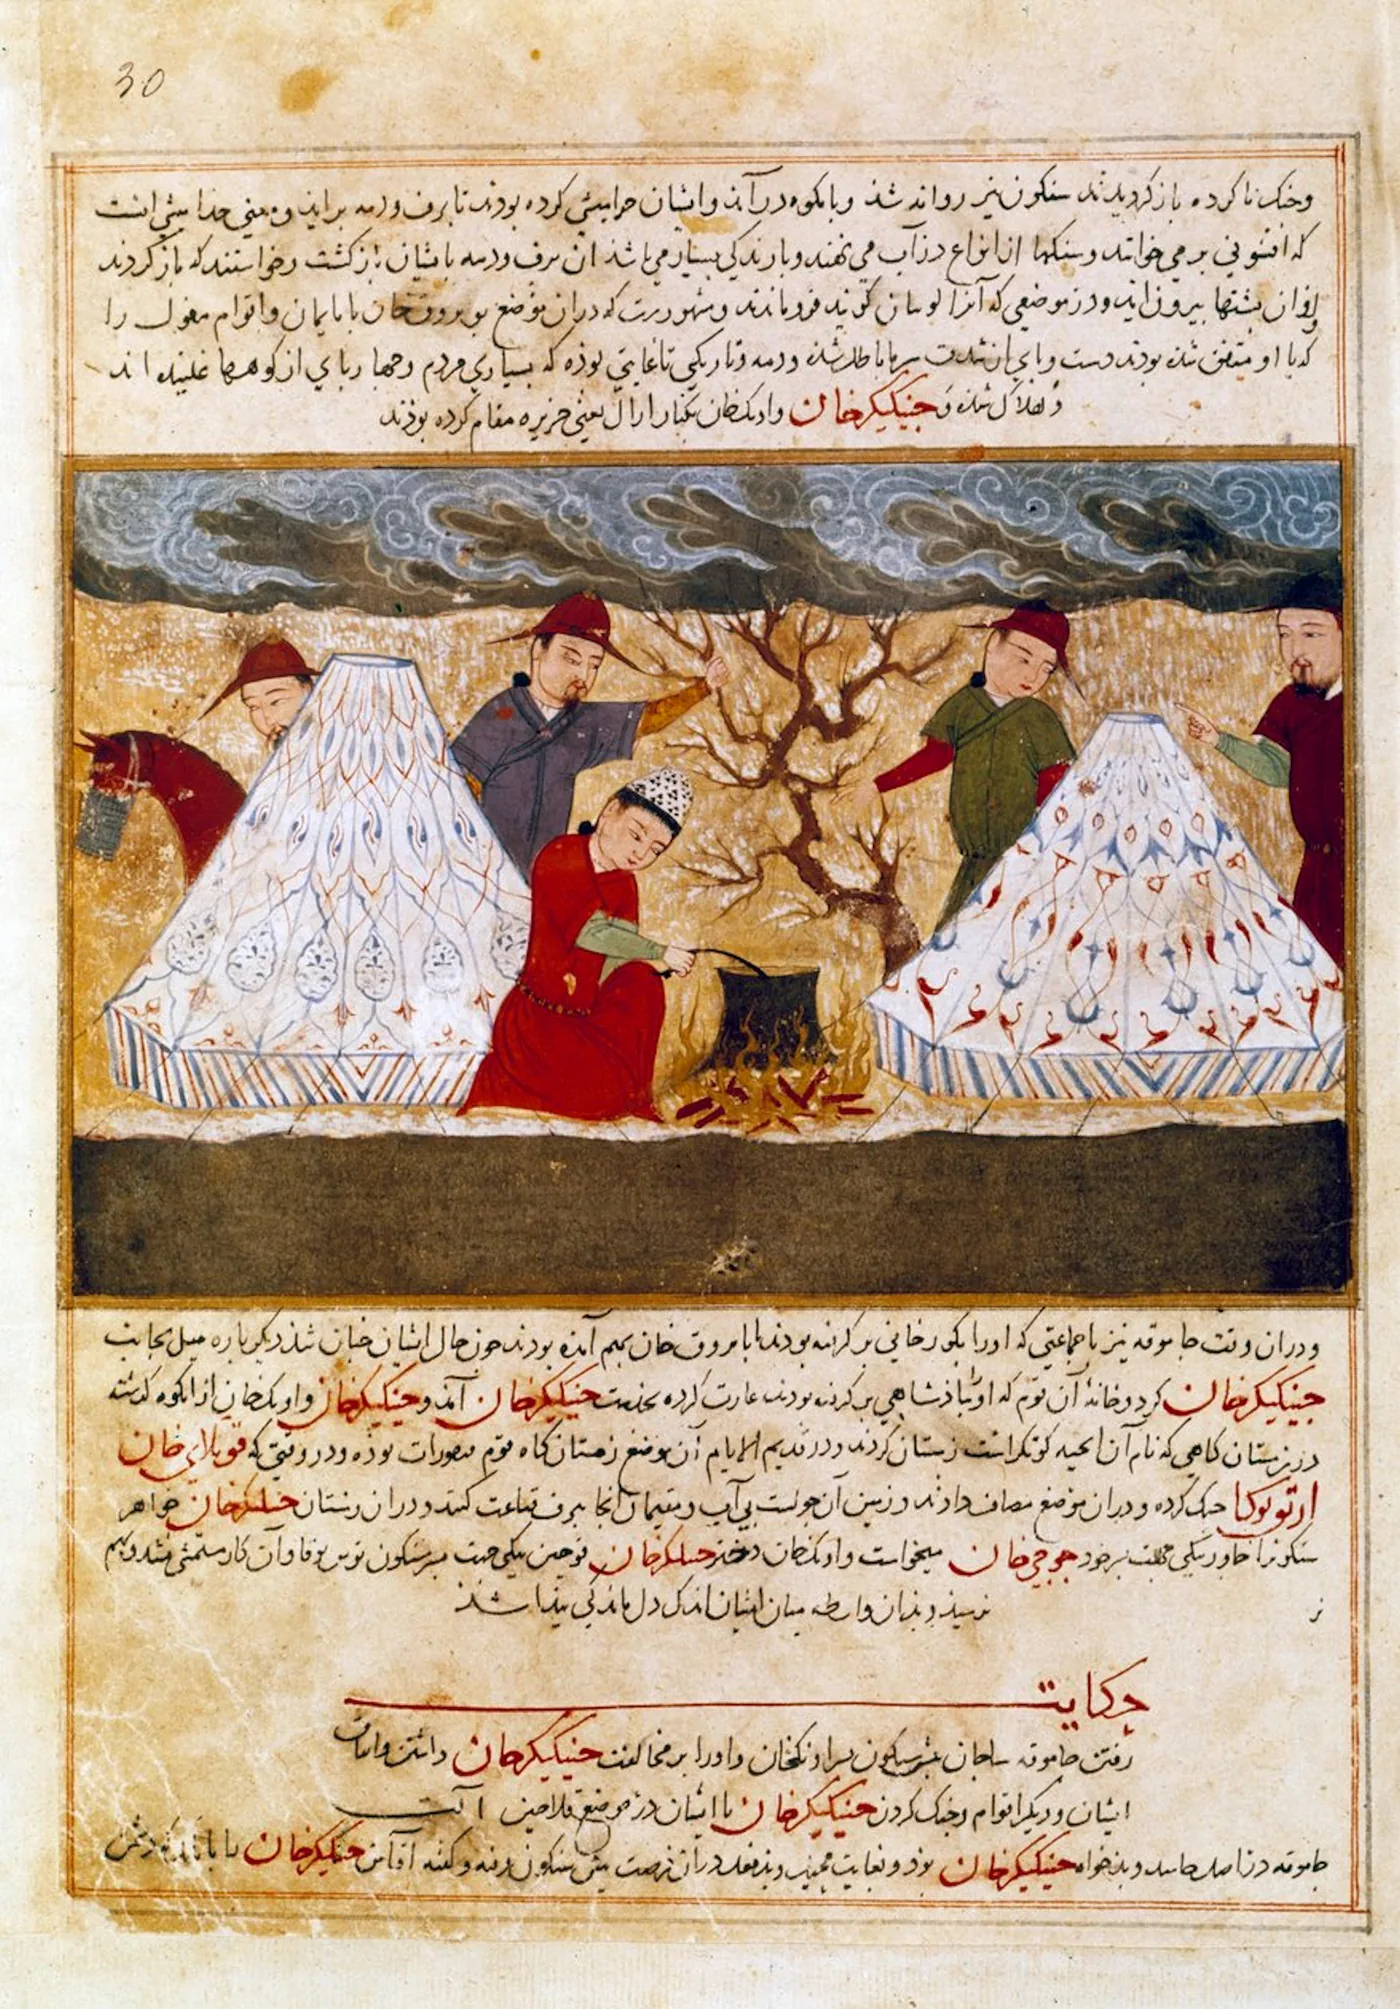 30
وجنک ناکرده بازکردیدند سنکون نیز روانه شد وبانکوه درآمد وایشان جدامیشی کرده بودند تا برف ودمه براید ومعنی جدامیشی انست
که افسونی بر می خوانند وسنکها از انواع در آب می نهند وبارندکی بسیار می باشد ان برف ودمه بایشان بازکشت وخواستند که بازکردند
وازان پشتها بیرون ایند ودر موضعی که آنرا کویند فروماندند ومشهورست که دران موضع بویروق خان با نایمان واقوام مغول را
که با او متفق شده بودند دست وپای از شدت سرما باطل شده ودمه وتاریکی تا غایتی بوده که بسیاری مردم وچهارپای از کوهها غلتیده اند
وهلاک شده و جینکیکزخان واونک خان بکنار ارال یعنی جزیره مقام کرده بودند
ودران وقت جاموقه نیز با جماعتی که اورا بکورخانی برکرفته بودند با بویروق خان بهم آمده بودند چون حال ایشان چنان شد دیکرباره میل بجانب
جینکیکزخان کرد وخانهٔ آن قوم که اورا بپادشاهی برکرفته بودند غارت کرده بخدمت جینکیکزخان آمد و جینکیکزخان واونک خان از انکوه کذشته
در زمستان کاهی که نام آن است زمستان کردند ودر قدیم الایام آن موضع زمستان کاه قوم قنقورات بوذه ودر وقتی که قوبلای خان
ارتوبوکا جنک کرده ودران موضع مصاف دادند وزمین آن چولست بی آب ومقیمان آنجا ببرف قناعت کنند ودران زمستان جینکیکزخان خواهر
سنکون را بیکی جهت پسر خود جوجی خان میخواست واونک خان دختر جینکیکزخان قوجین بیکی جهت پسر سنکون وآن کار متمشی نشد وبهم
نرسید وبدان واسطه میان ایشان اندک دل ماندکی پیدا شد
حکایت
رفتن جاموقه ساجان پیش سنکون پسر اونک خان واورا بر مخالفت جینکیکزخان داشتن واتفاق
ایشان ودیکر اقوام وجنک کردن جینکیکزخان با ایشان در موضع قلاجین الت
جاموقه در اصل حاسد وبدخواه جینکیکزخان بود وبغایت وبدفعل دران فرصت پیش سنکون رفته وکفته آقا من جینکیکزخان با که دشمن